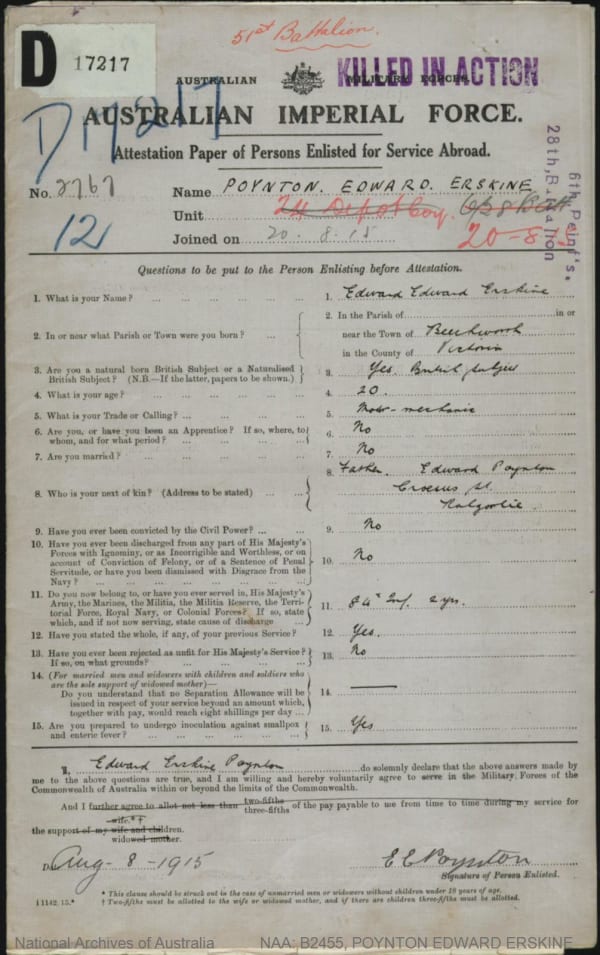 51st Battalion.
D 17217
AUSTRALIAN MILITARY FORCES.
KILLED IN ACTION
D17217
AUSTRALIAN IMPERIAL FORCE.
Attestation Paper of Persons Enlisted for Service Abroad.
28th Battalion
6th Reinf's.
No. 2767 Name POYNTON. EDWARD. ERSKINE
12
Unit 24 Depot Coy. 6/28 Batt
Joined on 20. 8. 15 20-8-
Questions to be put to the Person Enlisting before Attestation.
1. What is your Name? ... 1. Edward Edward Erskine
2. In or near what Parish or Town were you born? ... 2. In the Parish of in or
near the Town of Beechworth
in the County of Victoria
3. Are you a natural born British Subject or a Naturalised
British Subject? (N.B.—If the latter, papers to be shown.) 3. Yes. British Subject
4. What is your age? ... 4. 20.
5. What is your Trade or Calling? ... 5. Motor-mechanic
6. Are you, or have you been an Apprentice? If so, where, to
whom, and for what period? ... 6. No
7. Are you married? ... 7. No
8. Who is your next of kin? (Address to be stated) ... 8. Father. Edward Poynton
Croesus St.
Kalgoorlie.
9. Have you ever been convicted by the Civil Power? ... 9. No
10. Have you ever been discharged from any part of His Majesty's
Forces with Ignominy, or as Incorrigible and Worthless, or on
account of Conviction of Felony, or of a Sentence of Penal
Servitude, or have you been dismissed with Disgrace from the
Navy? ... 10. No
11. Do you now belong to, or have you ever served in, His Majesty's
Army, the Marines, the Militia, the Militia Reserve, the Terri-
torial Force, Royal Navy, or Colonial Forces? If so, state
which, and if not now serving, state cause of discharge 11. 84th Inf. 2 yrs.
12. Have you stated the whole, if any, of your previous Service? 12. Yes.
13. Have you ever been rejected as unfit for His Majesty's Service?
If so, on what grounds? 13. No
14. (For married men and widowers with children and soldiers who
are the sole support of widowed mother)—
Do you understand that no Separation Allowance will be
issued in respect of your service beyond an amount which,
together with pay, would reach eight shillings per day ... 14. —
15. Are you prepared to undergo inoculation against smallpox
and enteric fever? ... 15. Yes
I, Edward Erskine Poynton do solemnly declare that the above answers made by
me to the above questions are true, and I am willing and hereby voluntarily agree to serve in the Military Forces of the
Commonwealth of Australia within or beyond the limits of the Commonwealth.
And I further agree to allot not less than two-fifths three-fifths of the pay payable to me from time to time during my service for
wife.*†
the support of my wife and children.
widowed mother.
Date Aug - 8 - 1915 E E Poynton
Signature of Person Enlisted.
* This clause should be struck out in the case of unmarried men or widowers without children under 18 years of age.
† 1142.15.* † Two-fifths must be allotted to the wife or widowed mother, and if there are children three-fifths must be allotted.
National Archives of Australia NAA: B2455, POYNTON EDWARD ERSKINE